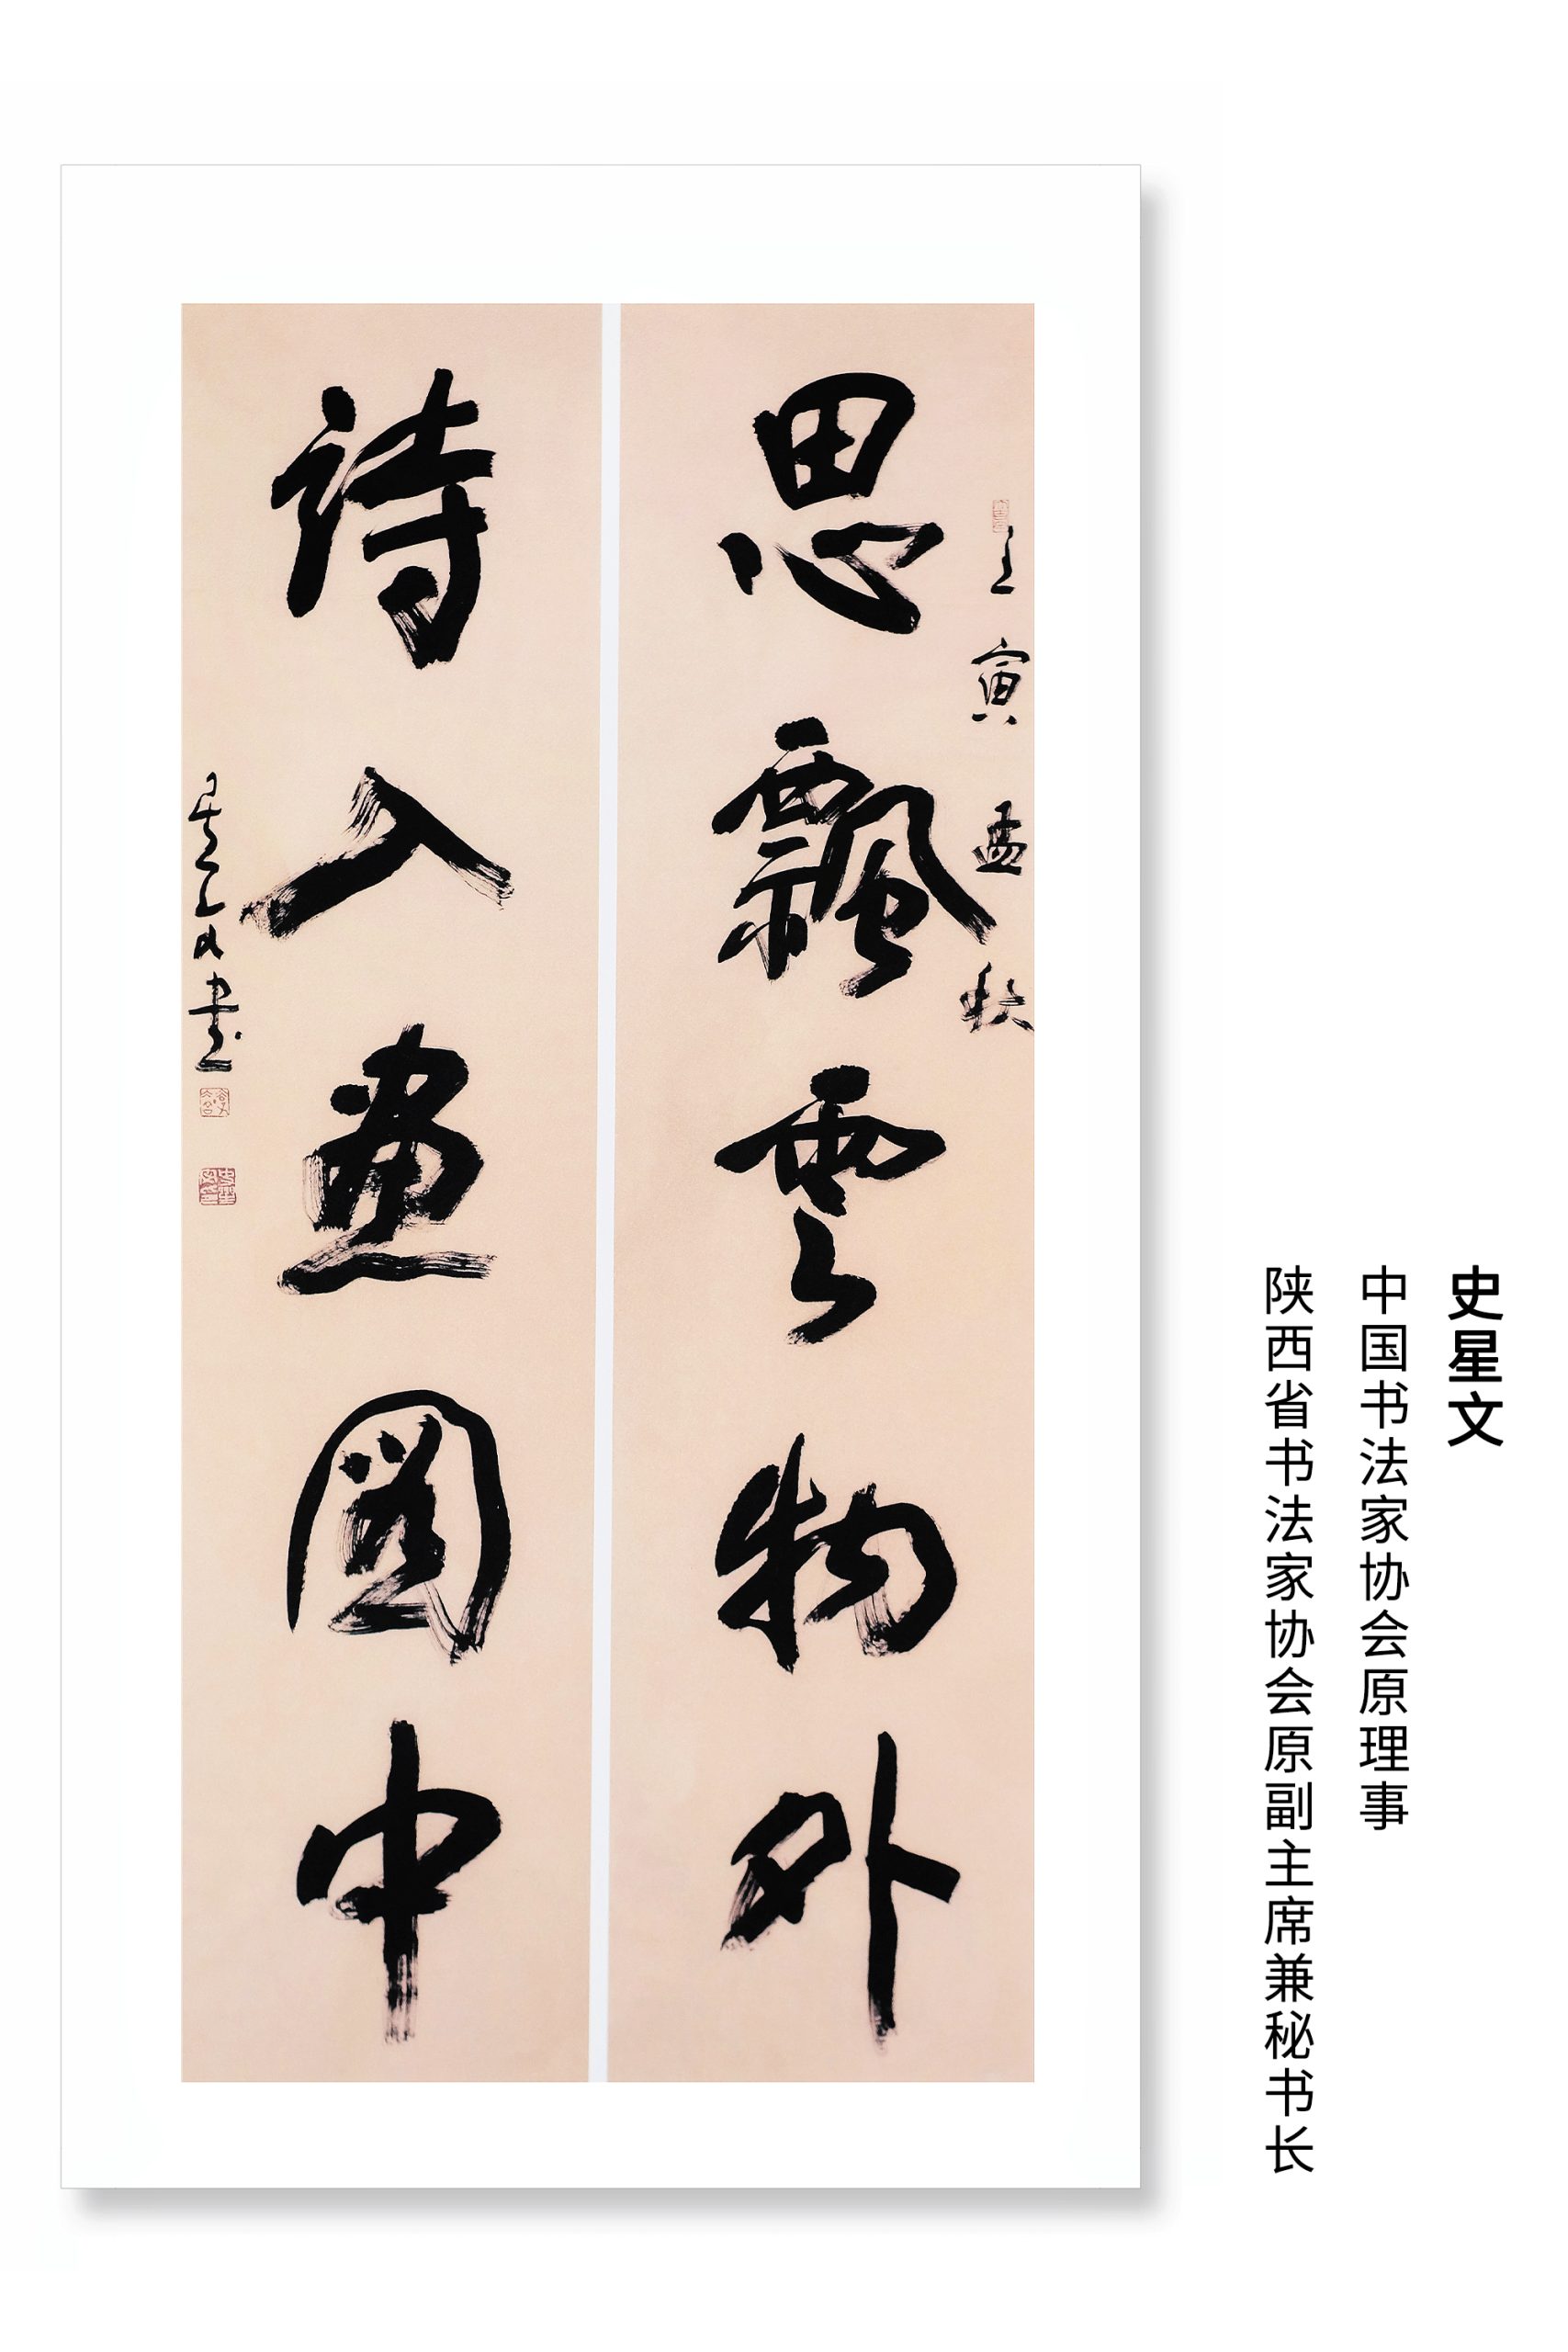 史星文
中国书法家协会原理事
陕西省书法家协会原副主席兼秘书长
壬寅孟秋
思飄雲物外
詩入畫圖中
星文書